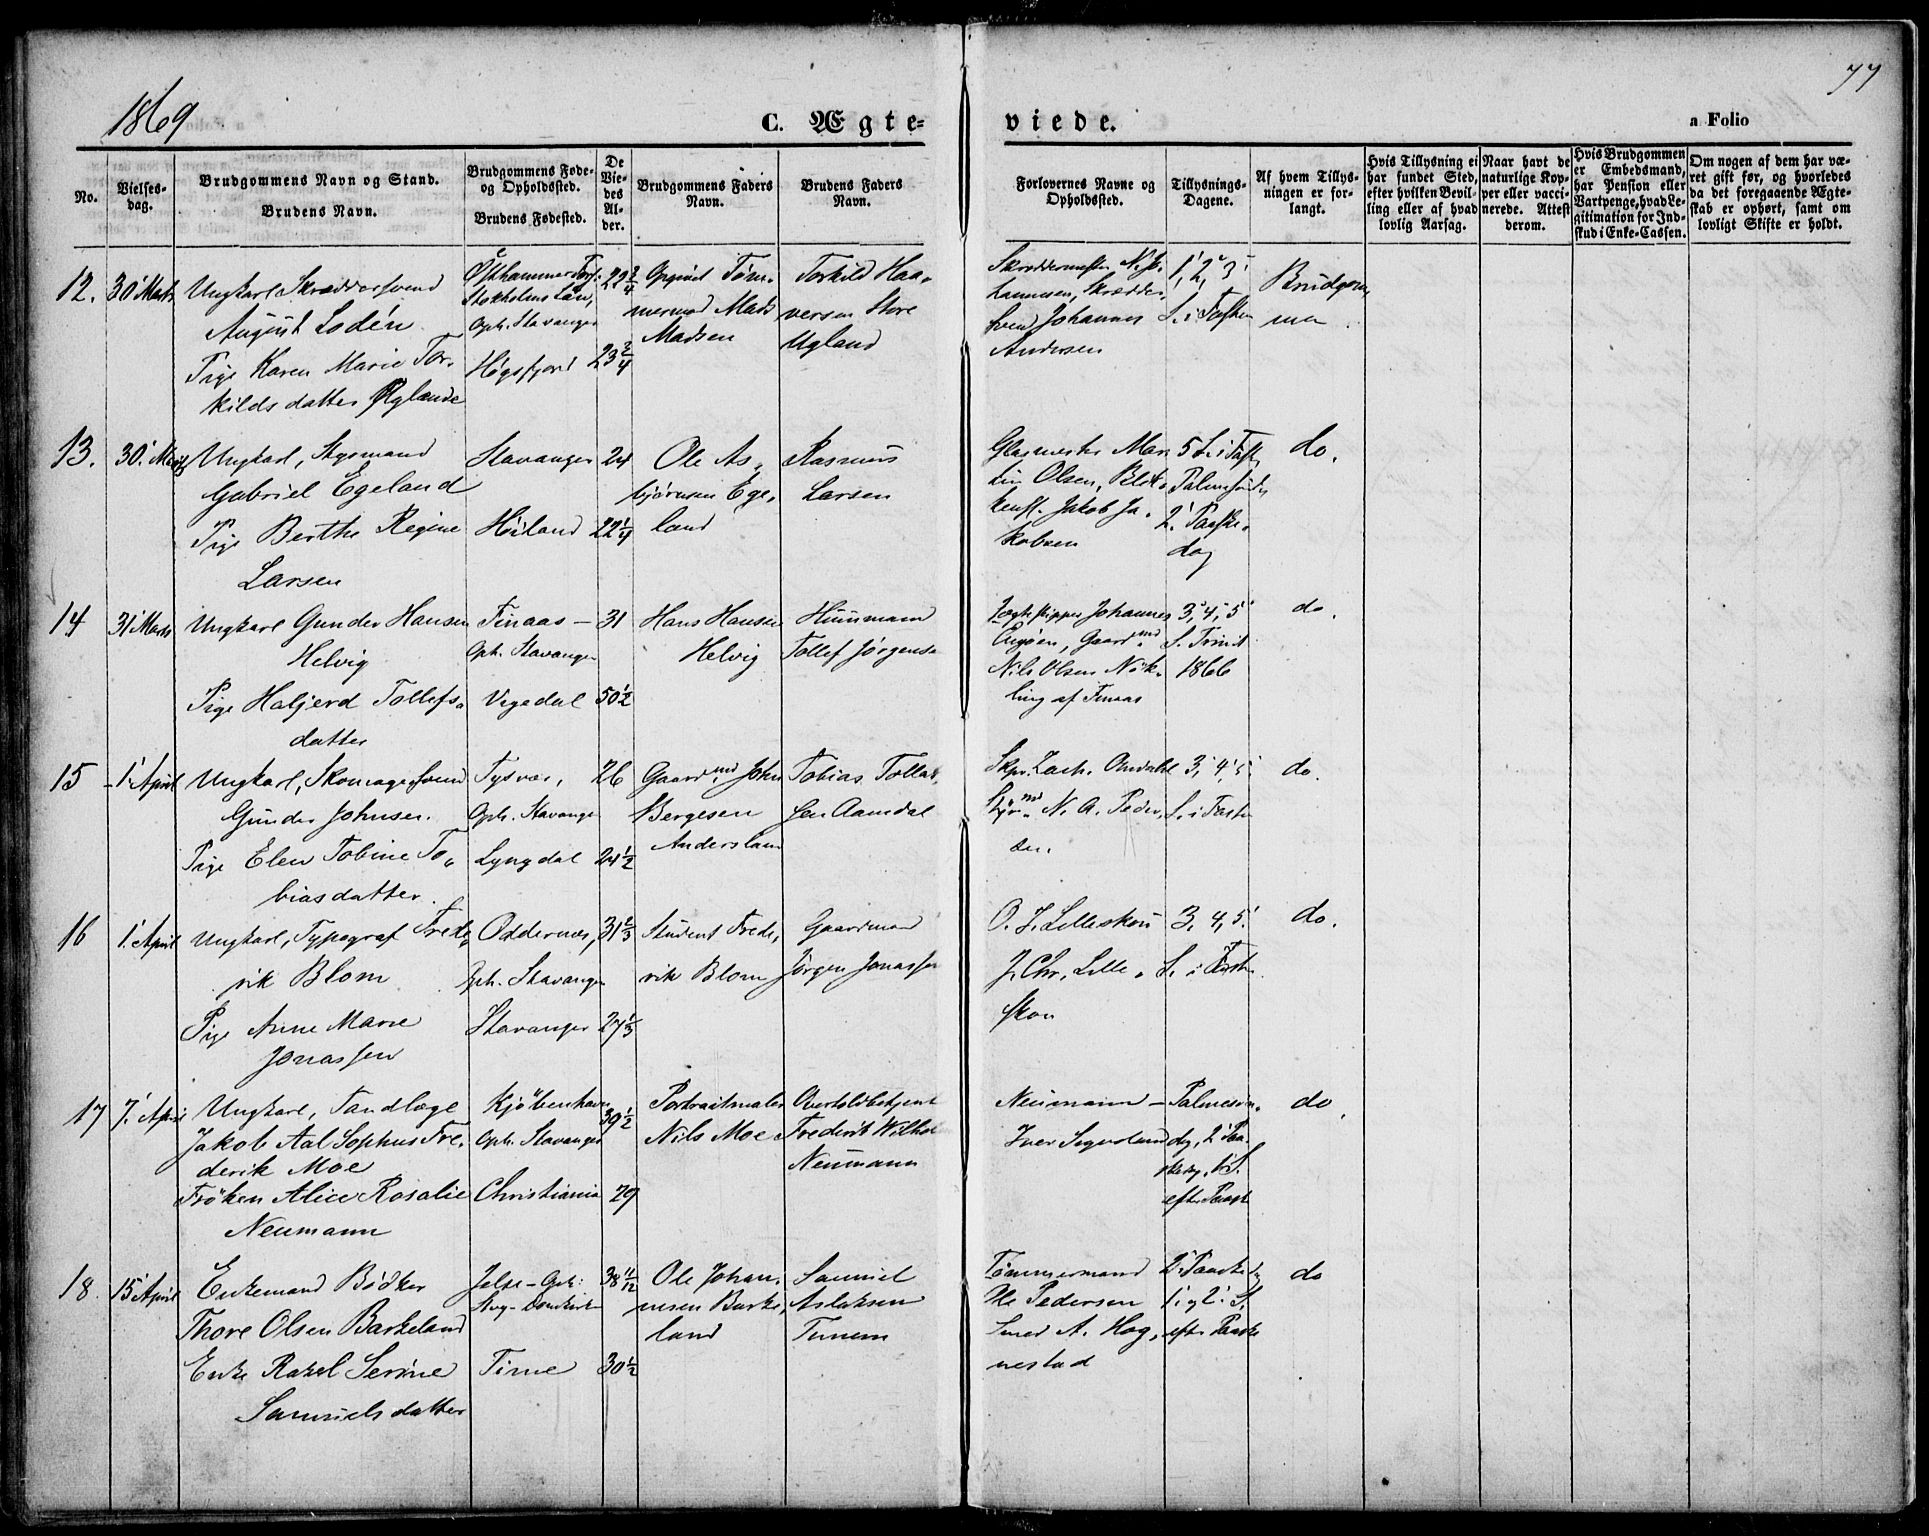 1869
77
C. Ægte-
viede.
a Folio
No.
Vielses-
dag.
Brudgommens Navn og Stand.
Brudens Navn.
Brudgommens Føde-
og Opholdssted.
Brudens Fødested.
De
Vie-
des
Al-
der.
Brudgommens Faders
Navn.
Brudens Faders
Navn.
Forlovernes Navne og
Opholdssted.
Tillysnings-
Dagene.
Af hvem Tillys-
ningen er for-
langt.
Hvis Tillysning ei
har fundet Sted,
efter hvilken Bevil-
ling eller af hvad
lovlig Aarsag.
Naar havt de
naturlige Kop-
per eller vacci-
nerede. Attest
derom.
Hvis Brudgommen
er Embedsmand,
har Pension eller
Vartpenge, hvad Le-
gitimation for Ind-
skud i Enke-Cassen.
Om nogen af dem har væ-
ret gift før, og hvorledes
da det foregaaende Ægte-
skab er ophørt, samt om
lovligt Skifte er holdt.
12.
30' Marts
Ungkarl Skræddersvend
August Lodén
Pige Karen Marie Tor-
kilds datter Øglænde
Stokholms Län,
Oph. Stavanger
Høgsfjord
22 3/4
23 3/4
Tøm-
mermd Mads
Madsen
Torkild Haa-
versen Store
Ugland
Skræddermester N. P.
Skrædder
svend Johannes
Andersen
1', 2' 3'
S. i Fasten
Brudgom-
men
13.
30' Marts
Ungkarl, Stysmand
Gabriel Egeland
Pige Berthe Regine
Larsen
Stavanger
Høiland
24
22 1/4
Ole As-
bjørnsen Ege-
land
Rasmus
Larsen
Glasmester Mar
tin Olsen, Blik-
kensl. Jakob Ja-
kobsen
5 S. i Fast
Palmesøndag
2' Paaske-
dag
do.
14
31' Marts
Ungkarl Gunder Hansen
Helvig
Pige Haljerd Tollefs-
datter
Tinaas -
Oph. Stavanger
Vegedal
31
50 1/2
Hans Hansen
Helvig
Huusmand
Tollef Jørgensen
Jægteskipper Johannes
Engøen, Gaardmd
Nils Olsen Nøk-
ling af Finaas
3', 4', 5'
S. Trinit
1866
do.
15
1' April
Ungkarl, Skomagersvend
Gunder Johnsen.
Pige Elen Tobine To-
biasdatter.
Tysvær,
Oph. Stavanger
Lyngdal
26
24 1/2
Gaardmd John
Bergesen
Anderslam
Tobias Tollak-
sen Aamdal
Skpr. Zach. Omdahl
Styrmd N. A. Peder-
sen.
3', 4', 5'
S. i Fasten
do.
16
1' April
Ungkarl, Typograf Frede-
rik Blom
Pige Anne Marie
Jonassen
Oddernæs,
Oph. Stavanger
Stavanger
31 2/3
27 1/3
Student Frede-
rik Blom
Gaardmand
Jørgen Jonassen
O. J. Lilleskou
J. Chr. Lille-
skou
3, 4, 5'
S. i Fasten
do.
17
7' April
Ungkarl, Tandlæge
Jakob Aal Sophus Fre-
derik Moe
Frøken Alice Rosalie
Neumann
Kjøbenhavn
Oph. Stavanger
Christiania
39 1/2
29
Portraitmaler
Nils Moe
Overtoldbetjent
Frederik Wilhelm
Neumann
Neumann
Palmesøn-
dg, 2' Paa-
skedag, 1' S.
efter Paaske
do.
18
15' April
Enkemand Bødker
Thore Olsen Barkeland
Enke Rakel Serine
Samuelsdatter
Time
38 11/12
30 1/2
Ole Johan-
nesen Barke-
land
Samuel
Aslaksen
Tunem
Tømmermand
Ole Pedersen
Smed A. Hog-
nestad
2' Paaskedg
1' og 2' S.
efter Paaske
do